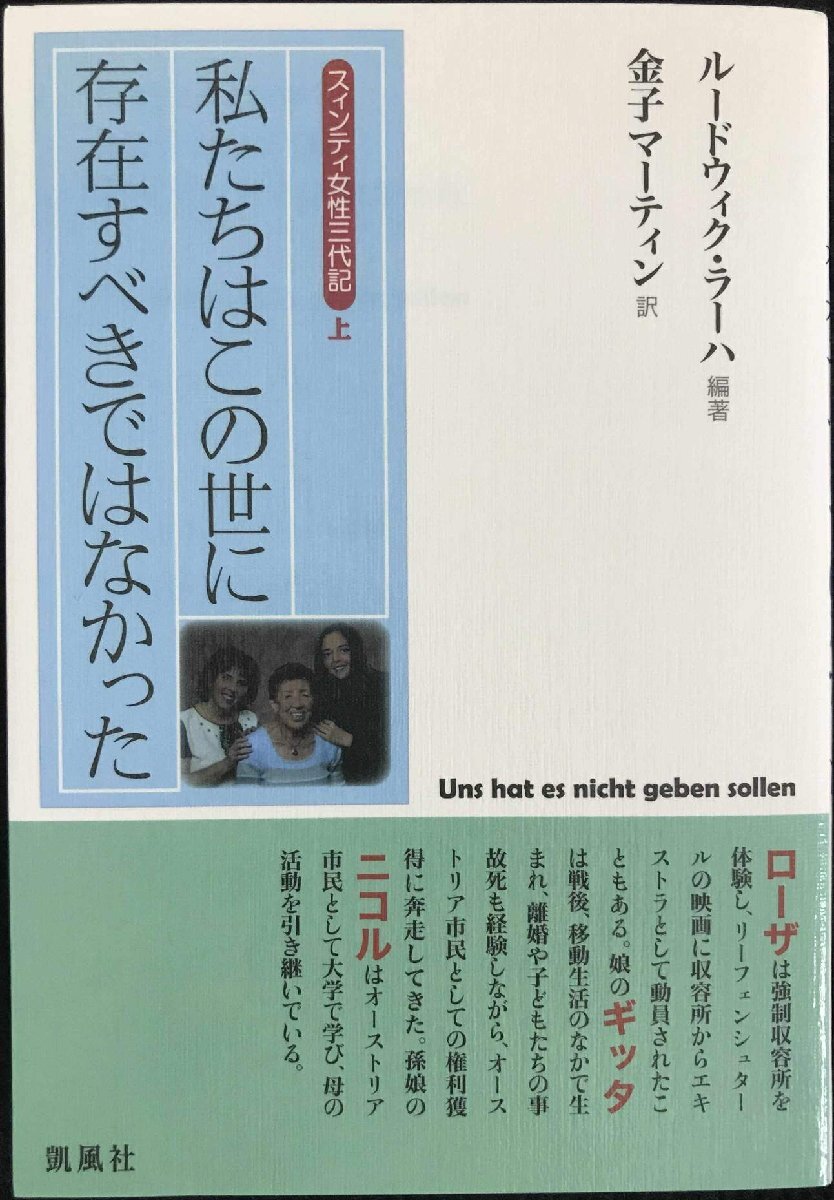 ルードウィク・ラーハ 編著
金子マーティン 訳
スィンティ女性三代記 上
私たちはこの世に
存在すべきではなかった
Uns hat es nicht geben sollen
ローザは強制収容所を
体験し、リーフェンシュター
ルの映画に収容所からエキ
ストラとして動員されたこ
ともある。娘のギッタ
は戦後、移動生活のなかで生
まれ、離婚や子どもたちの事
故死も経験しながら、オース
トリア市民としての権利獲
得に奔走してきた。孫娘の
ニコルはオーストリア
市民として大学で学び、母の
活動を引き継いでいる。
凱風社